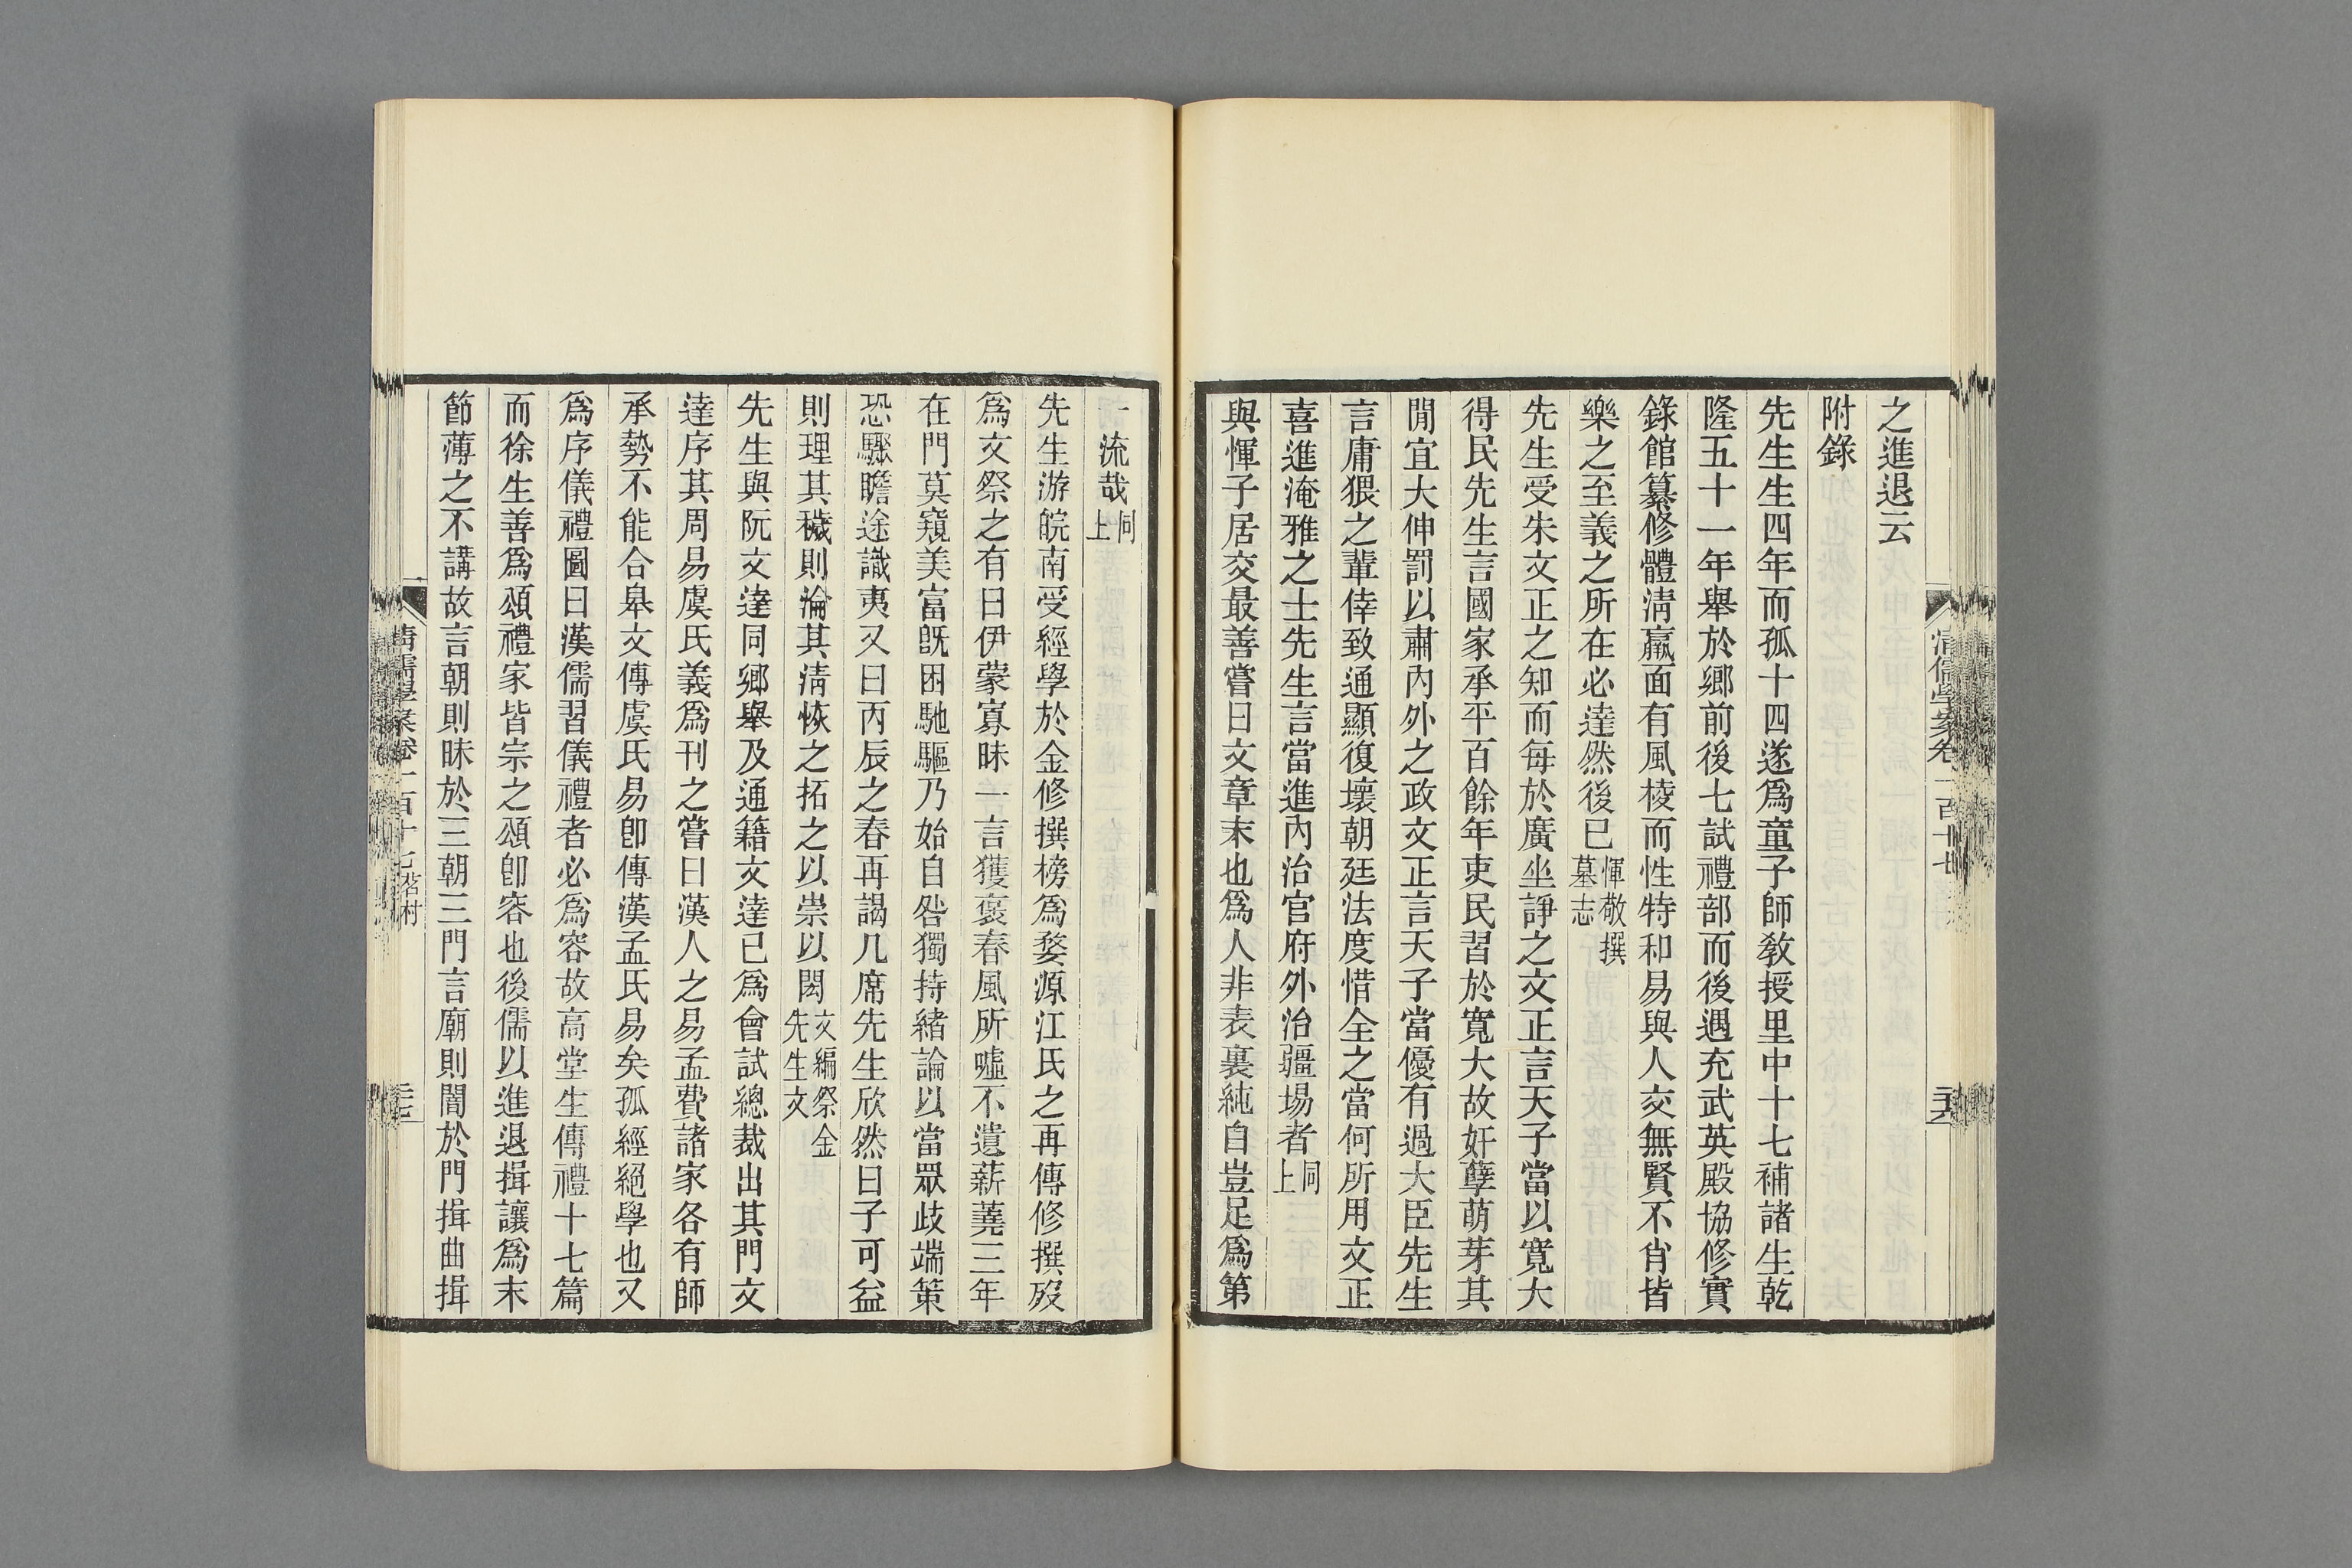 之進退云
附錄
先生生四年而孤十四遂爲童子師敎授里中十七補諸生乾
隆五十一年舉於鄉前後七試禮部而後遇充武英殿協修實
錄館纂修體淸羸面有風棱而性特和易與人交無賢不肖皆
樂之至義之所在必達然後已惲敬撰墓志
先生受朱文正之知而每於廣坐諍之文正言天子當以寬大
得民先生言國家承平百餘年吏民習於寬大故奸孽萌芽其
閒宜大伸罰以肅內外之政文正言天子當優有過大臣先生
言庸猥之輩倖致通顯復壞朝廷法度惜全之當何所用文正
喜進淹雅之士先生言當進內治官府外治疆埸者同上
與惲子居交最善嘗曰文章末也爲人非表裏純白豈足爲第
一流哉同上
先生游皖南受經學於金修撰榜爲婺源江氏之再傳修撰歿
爲文祭之有曰伊蒙寡昧一言獲褒春風所噓不遺薪蕘三年
在門莫窺美富旣困馳驅乃始自咎獨持緒論以當眾歧端策
恐驟瞻途識夷又曰丙辰之春再謁几席先生欣然曰子可益
則理其穢則淪其淸恢之拓之以崇以閎文編祭金先生文
先生與阮文達同鄉舉及通籍文達已爲會試總裁出其門文
達序其周易虞氏義爲刊之嘗曰漢人之易孟費諸家各有師
承勢不能合皋文傳虞氏易卽傳漢孟氏易矣孤經絕學也又
爲序儀禮圖曰漢儒習儀禮者必爲容故高堂生傳禮十七篇
而徐生善爲頌禮家皆宗之頌卽容也後儒以進退揖讓爲末
節薄之不講故言朝則昧於三朝三門言廟則闇於門揖曲揖
清儒學案卷一百十七
清儒學案卷一百十七 茗柯